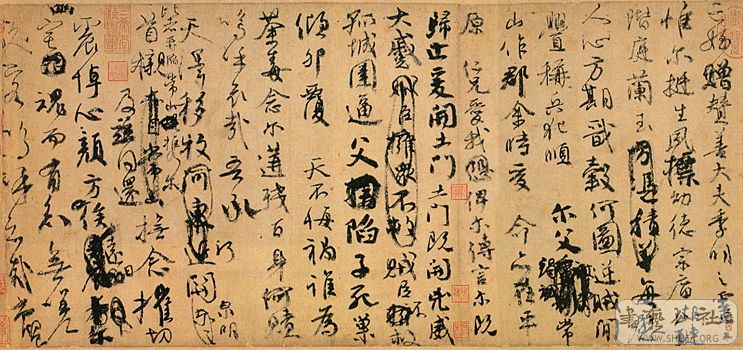 亡姪贈贊善大夫季明之靈
惟爾挺生夙標幼德宗廟
階庭蘭玉方憑積善每
人心方期戩穀何圖逆賊閒
釁稱兵犯順爾父竭誠常
山作郡余時受命亦在平
原仁兄愛我俾爾傳言爾既
歸止爰開土門土門既開兇威
大蹙賊臣擁眾不救賊臣不救
孤城圍逼父陷子死巢
傾卵覆天不悔禍誰為
荼毒念爾遘殘百身何贖
嗚乎哀哉吾承
天澤移牧河關泉明
比者再陷常山攜爾
首櫬及茲同還撫念摧切
震悼心顏方俟遠日
宅魂而有知無嗟
久客嗚呼哀哉尚饗